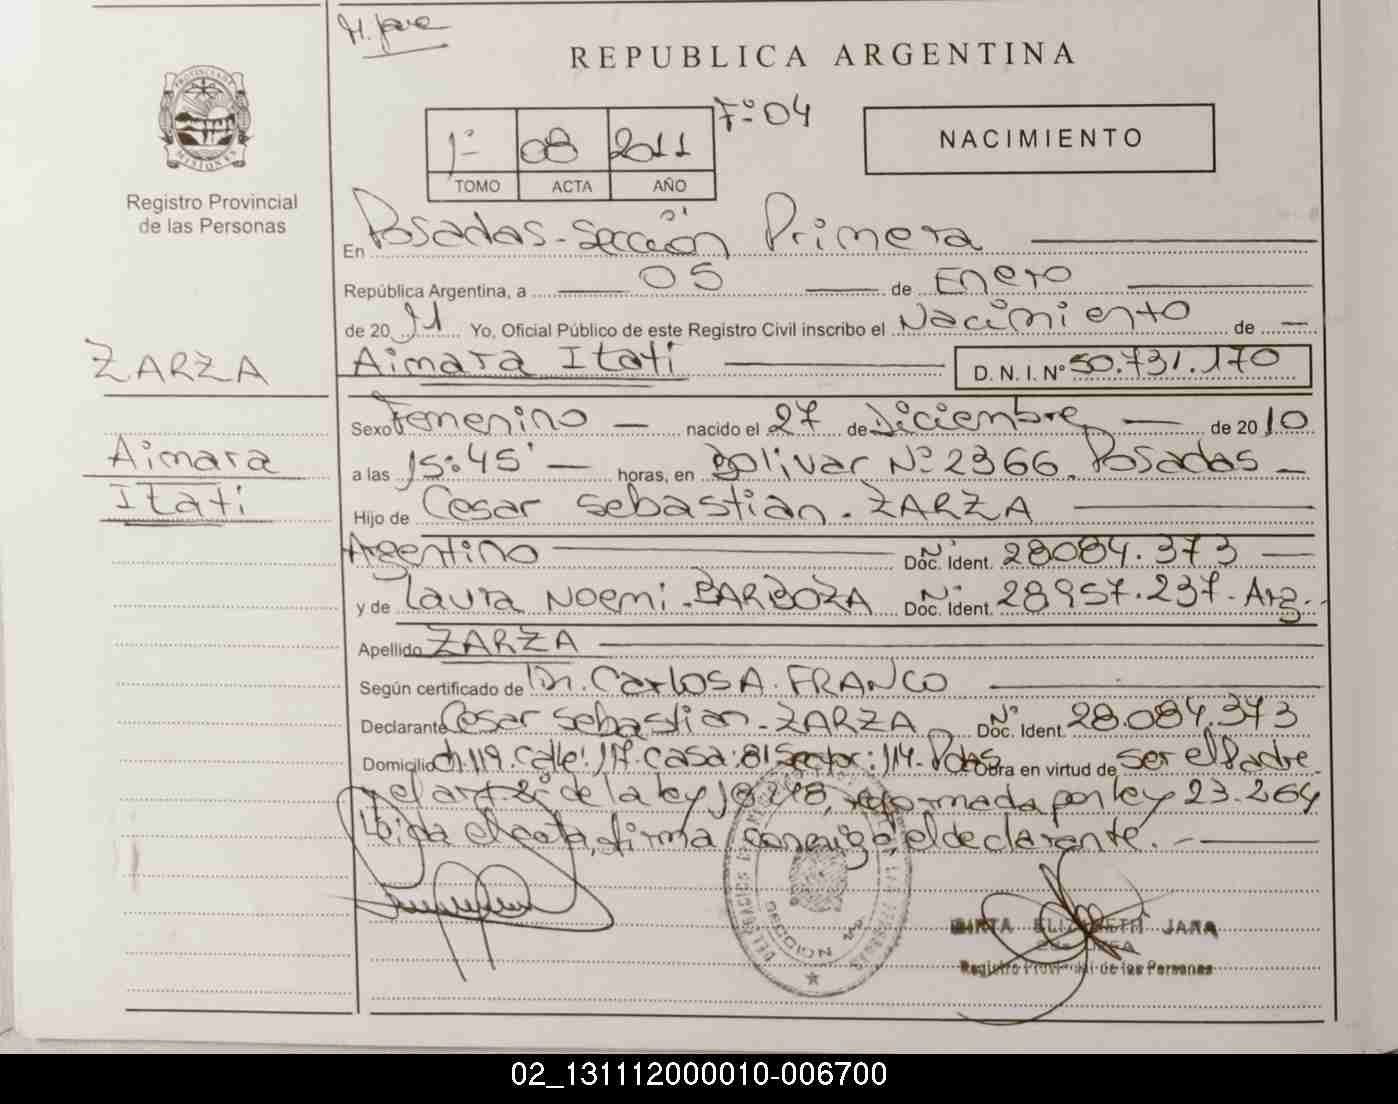 M. Jara
REPUBLICA ARGENTINA
PROVINCIA DE MISIONES
Registro Provincial
de las Personas
1º 08 2011 Fº 04
TOMO ACTA AÑO
NACIMIENTO
En Posadas - Sección Primera
República Argentina, a 05 de Enero
de 20 11 Yo, Oficial Público de este Registro Civil inscribo el Nacimiento de
ZARZA
Aimara Itatí D. N. I. Nº 50.731.170
Sexo Femenino nacido el 27 de Diciembre de 20 10
Aimara
Itatí
a las 15:45' horas, en Bolivar Nº 2366. Posadas
Hijo de Cesar Sebastian. ZARZA
Argentino Doc. Ident. Nº 28084.373
y de Laura Noemi. BARBOZA Doc. Ident. Nº 28957.237. Arg.
Apellido ZARZA
Según certificado de Dr. Carlos A. FRANCO
Declarante Cesar Sebastian. ZARZA Doc. Ident. Nº 28.084.373
Domicilio ch. 119. Calle: 117. Casa: 81 Sector: 114. Pdas Obra en virtud de ser el Padre
el art de la ley 18.248, reformada por ley 23.264
Leida el acta, firma conmigo, el declarante.
SECCION 1ra
MIRTA ELIZABETH JARA
Registro Provincial de las Personas
02_131112000010-006700